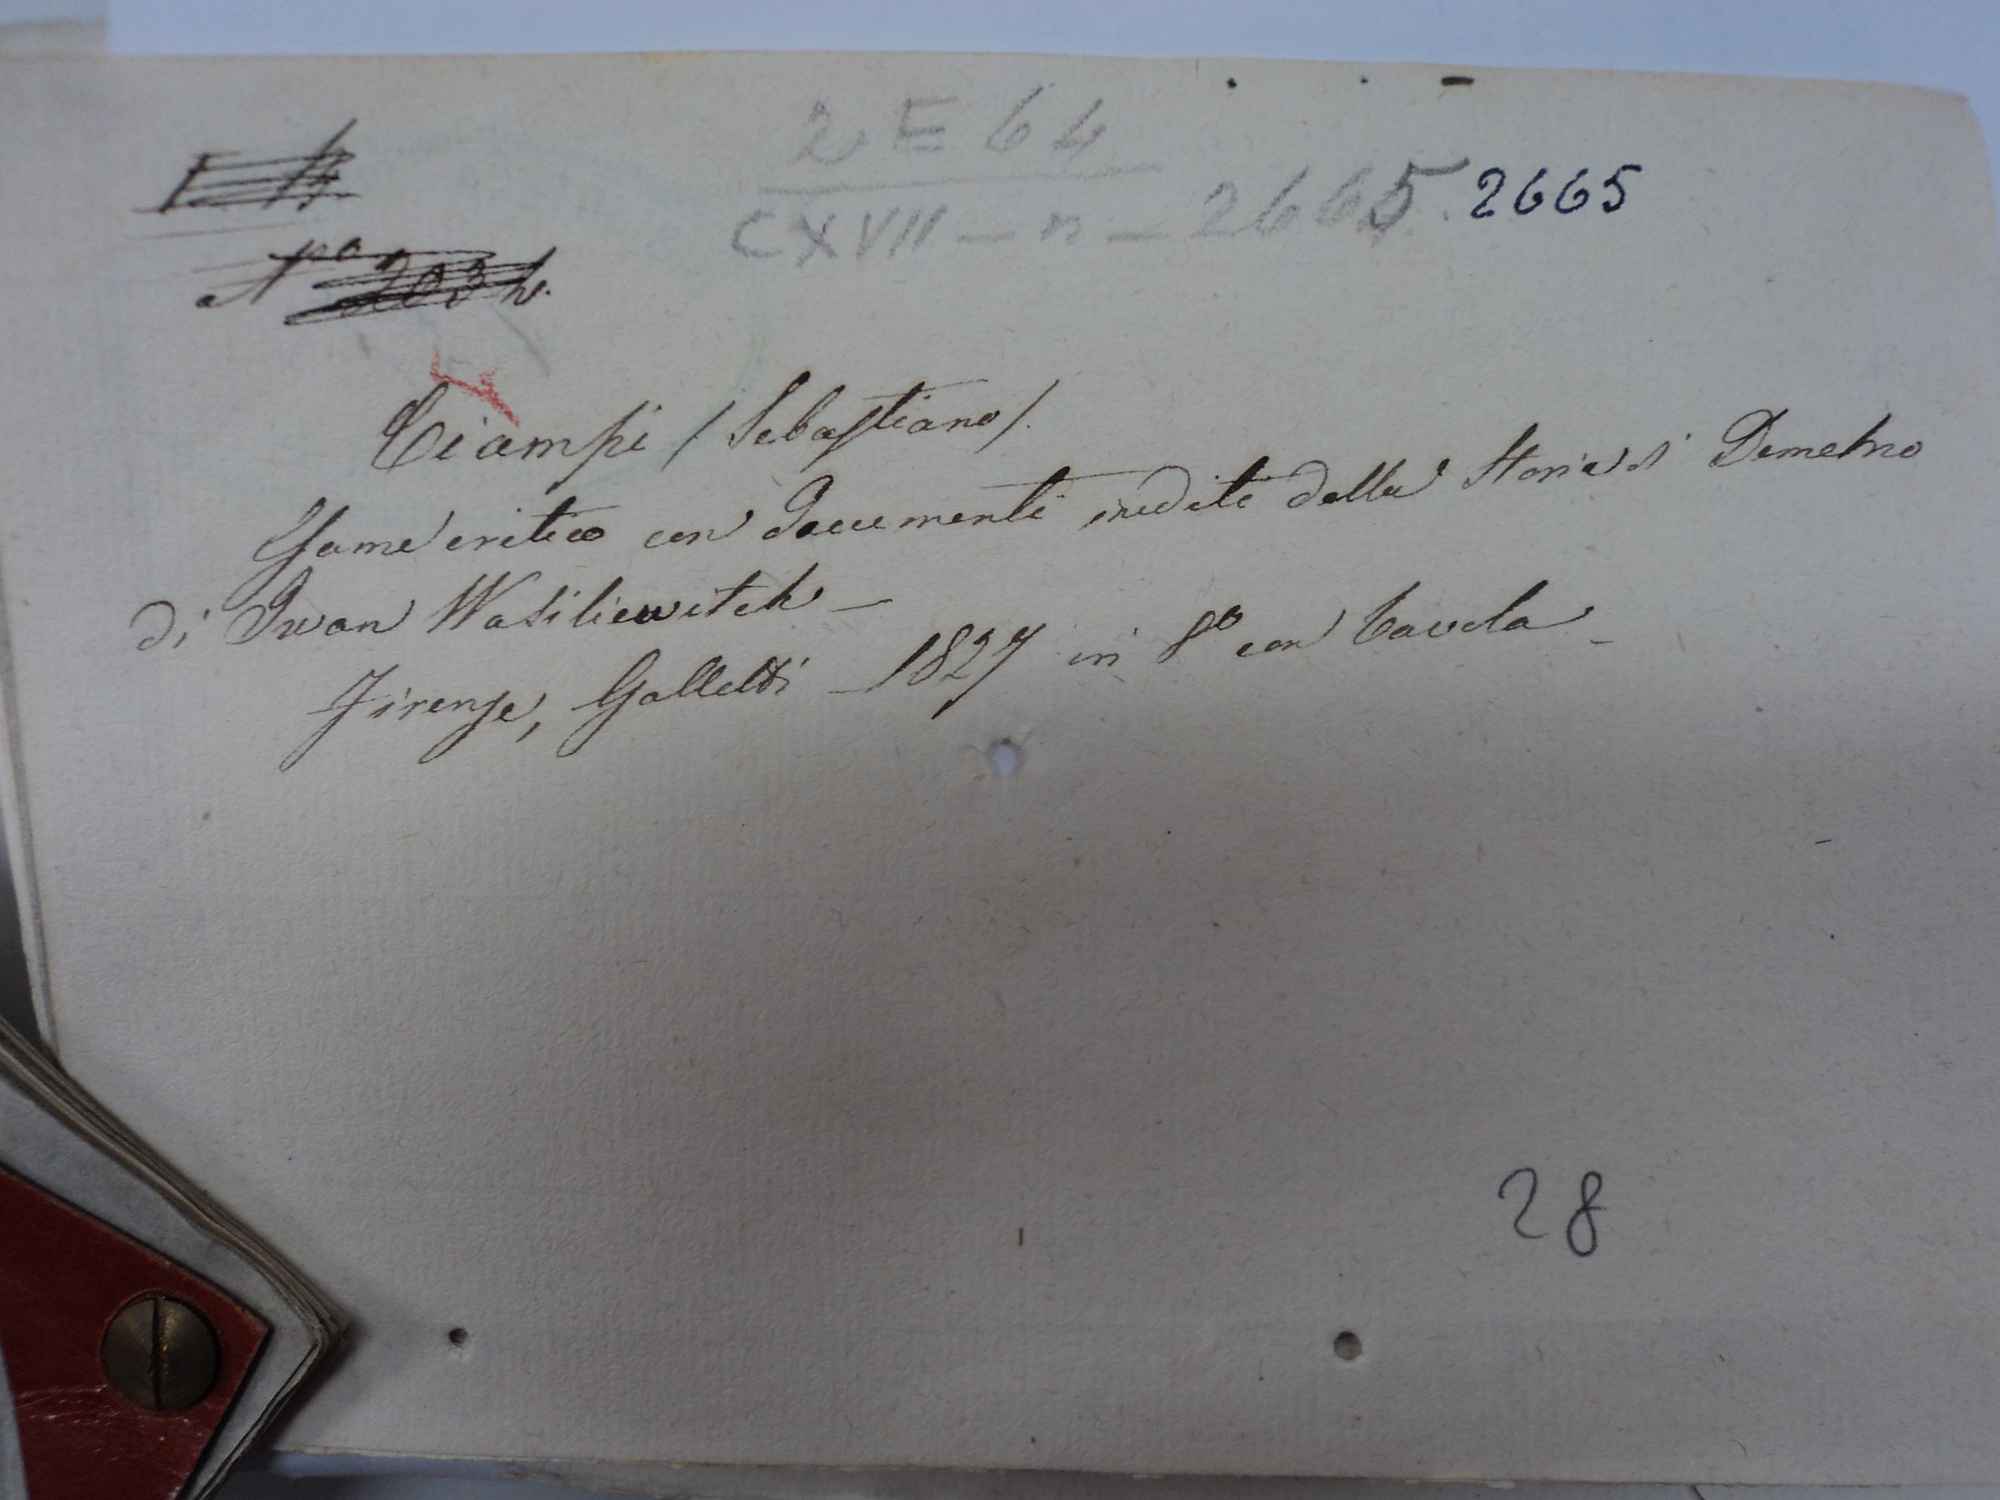 2 E 64
CXVII - n - 2665. 2665
Nº 203
Ciampi / Sebastiano /.
Esame critico con documenti inediti della Storia di Demetrio
di Iwan Wasiliewitch —
Firenze, Galletti — 1827 in 8º con tavola —
28